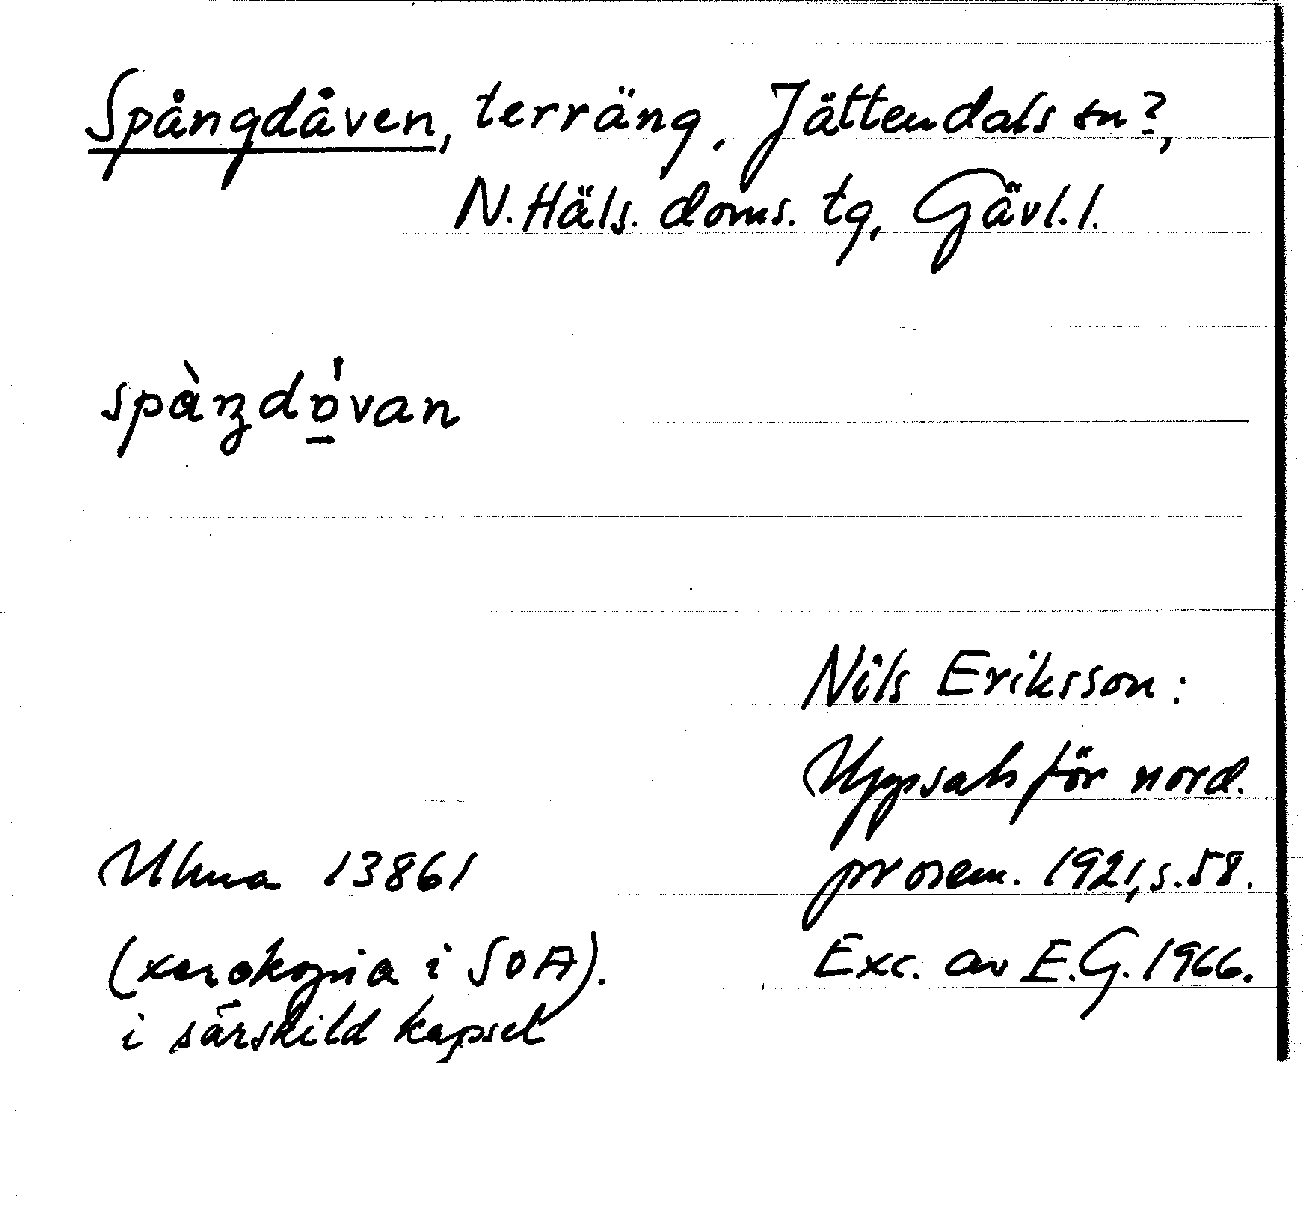 Spångdåven, terräng, Jättendals sn?,
N. Häls. doms. tg, Gävl. l.
spàŋdo̠̍van
Nils Eriksson:
Uppsats för nord.
prosem. 1921, s. 58.
Exc. av E.G. 1966.
Ulma 13861
(xerokopia i SOA).
i särskild kapsel